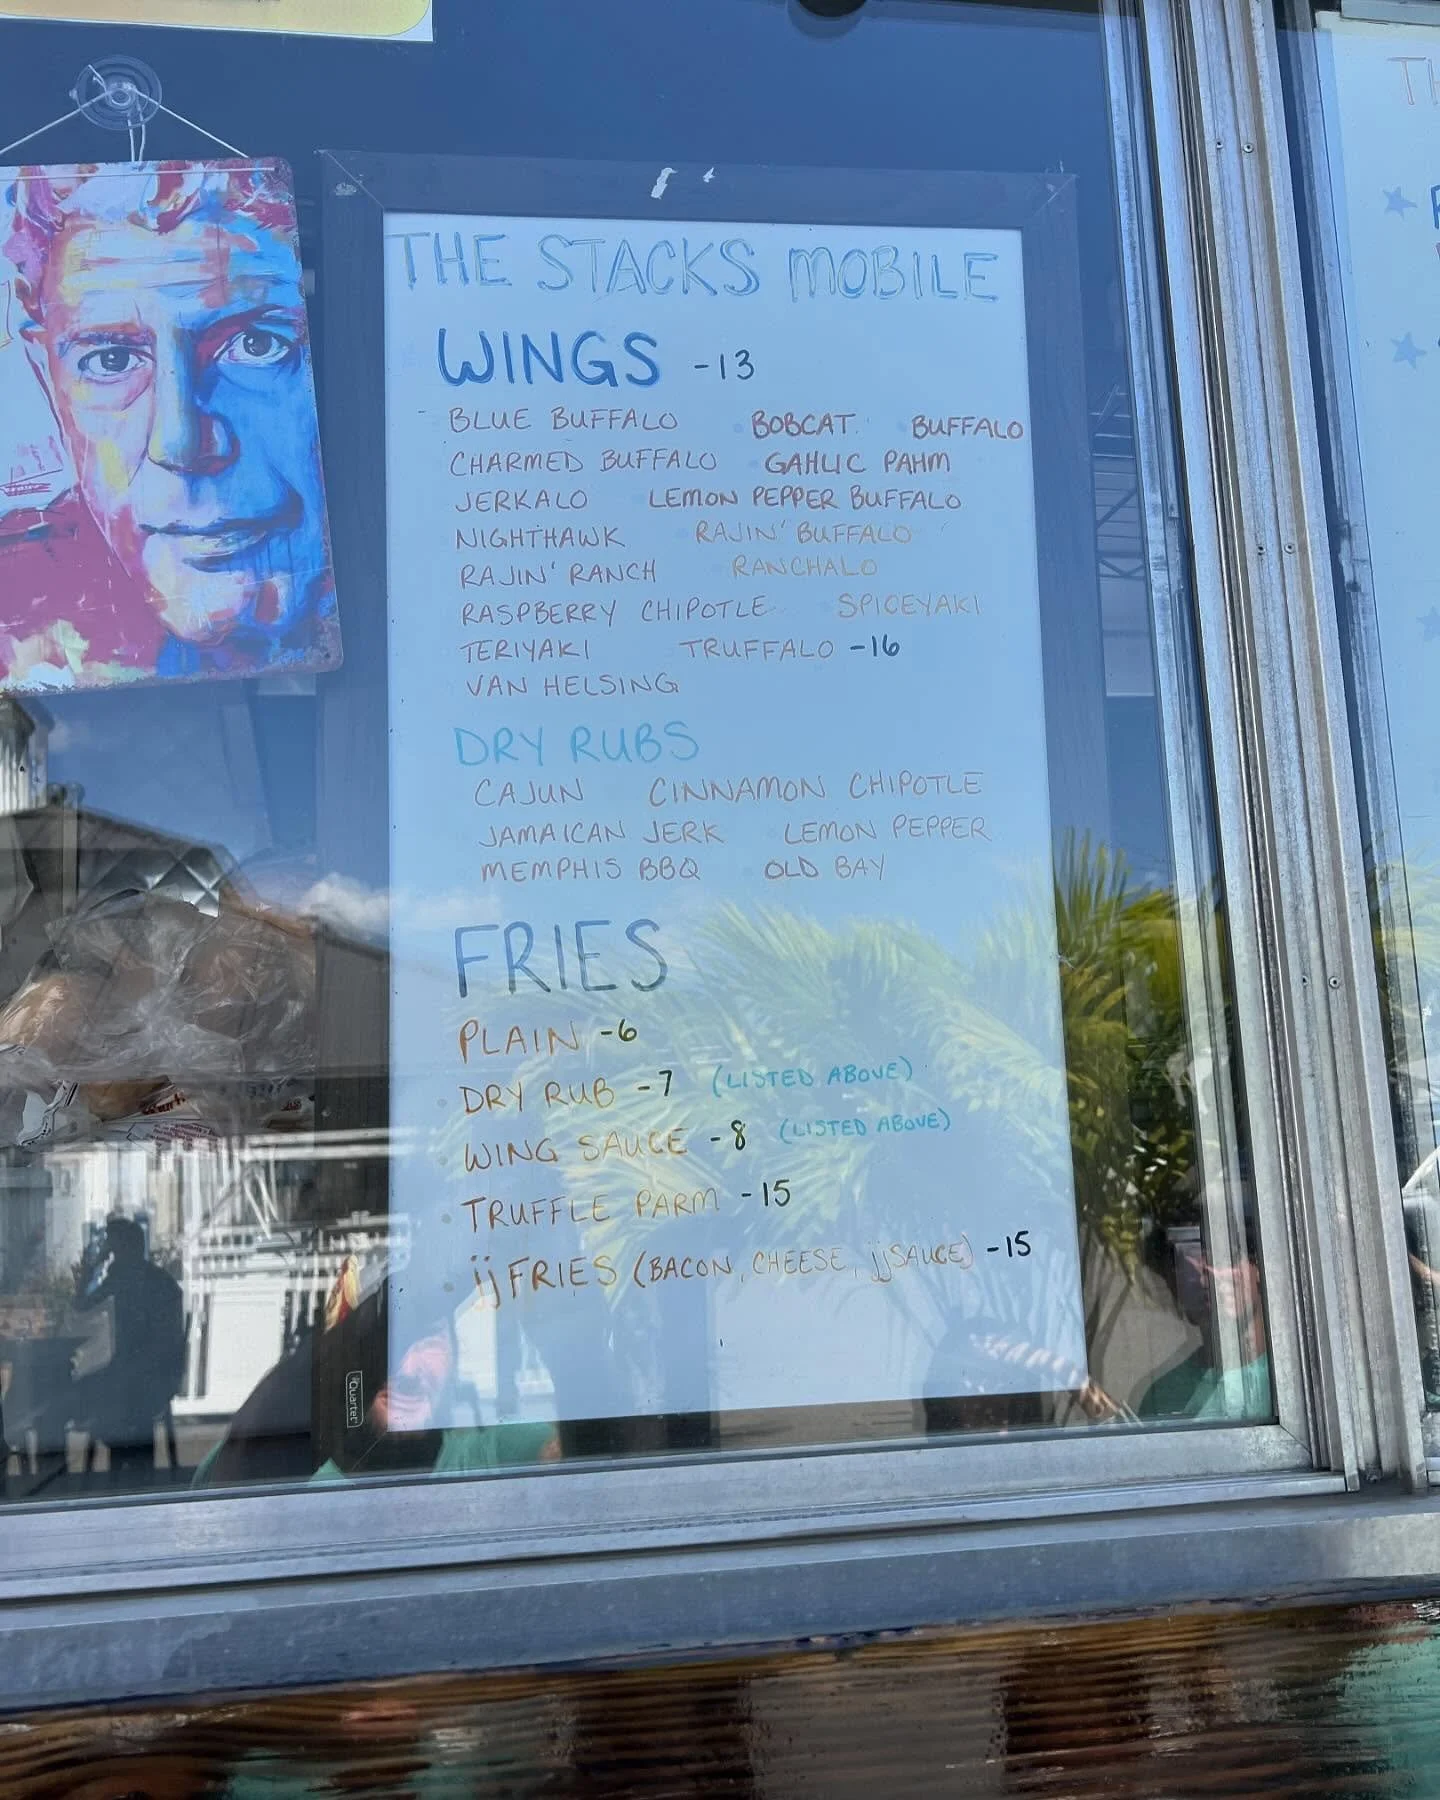 THE STACKS MOBILE
WINGS -13
- BLUE BUFFALO BOBCAT BUFFALO
CHARMED BUFFALO GAHLIC PAHM
JERKALO LEMON PEPPER BUFFALO
NIGHTHAWK RAJIN' BUFFALO
RAJIN' RANCH RANCHALO
RASPBERRY CHIPOTLE SPICEYAKI
TERIYAKI TRUFFALO -16
VAN HELSING
DRY RUBS
CAJUN CINNAMON CHIPOTLE
JAMAICAN JERK LEMON PEPPER
MEMPHIS BBQ OLD BAY
FRIES
PLAIN -6
DRY RUB -7 (LISTED ABOVE)
WING SAUCE -8 (LISTED ABOVE)
TRUFFLE PARM -15
jj FRIES (BACON, CHEESE, jjSAUCE) -15
Quartet